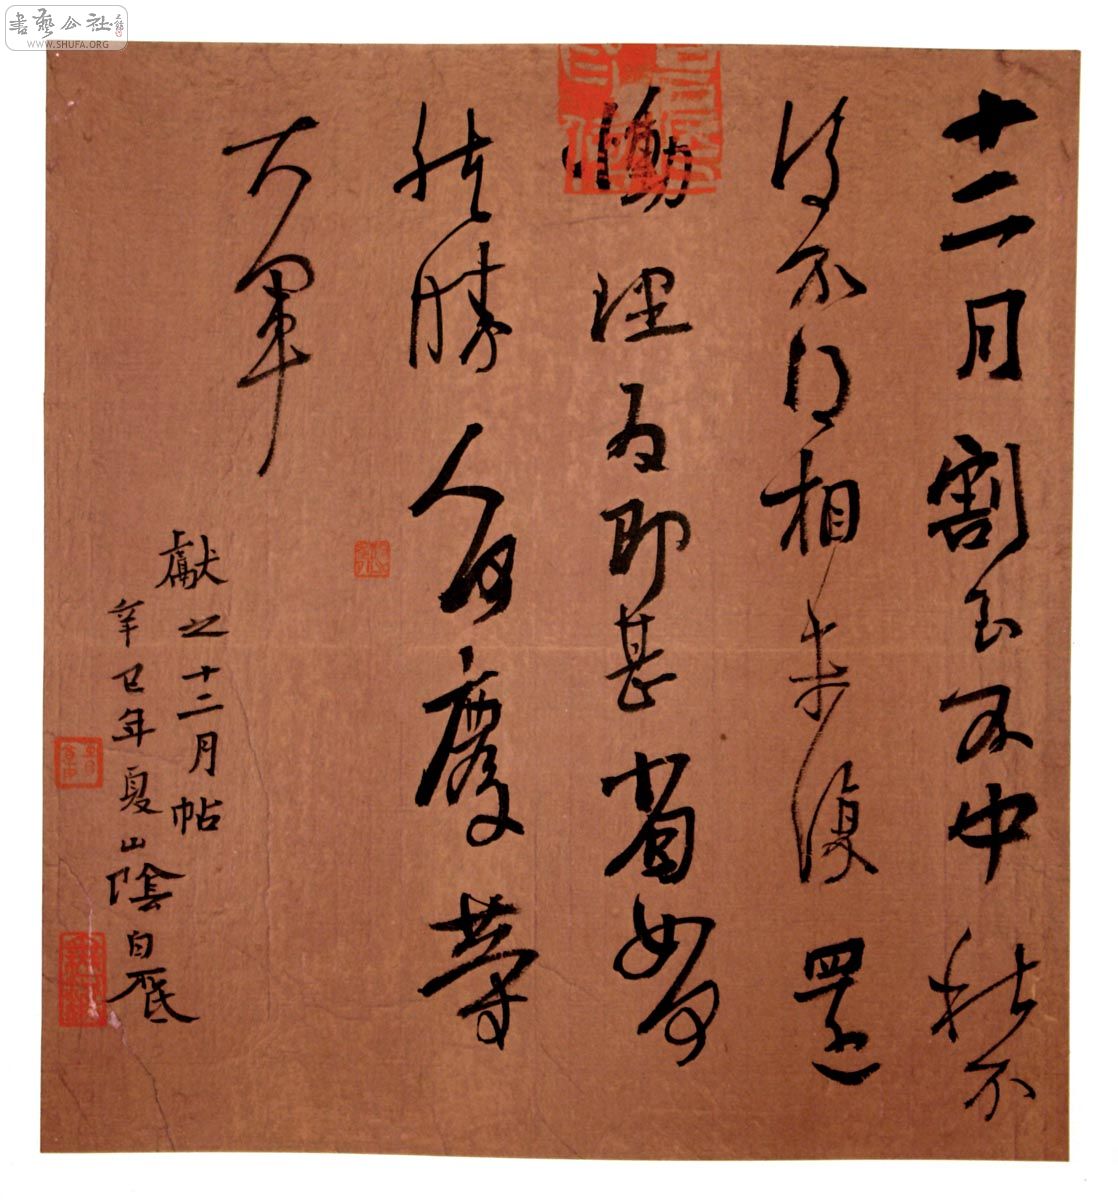 書藝公社
WWW.SHUFA.ORG
十二月割至不中秋不
復不得相未復還
慟理為即甚省如何
然勝人何慶等
大軍
獻之十二月帖
辛巳年夏山陰自